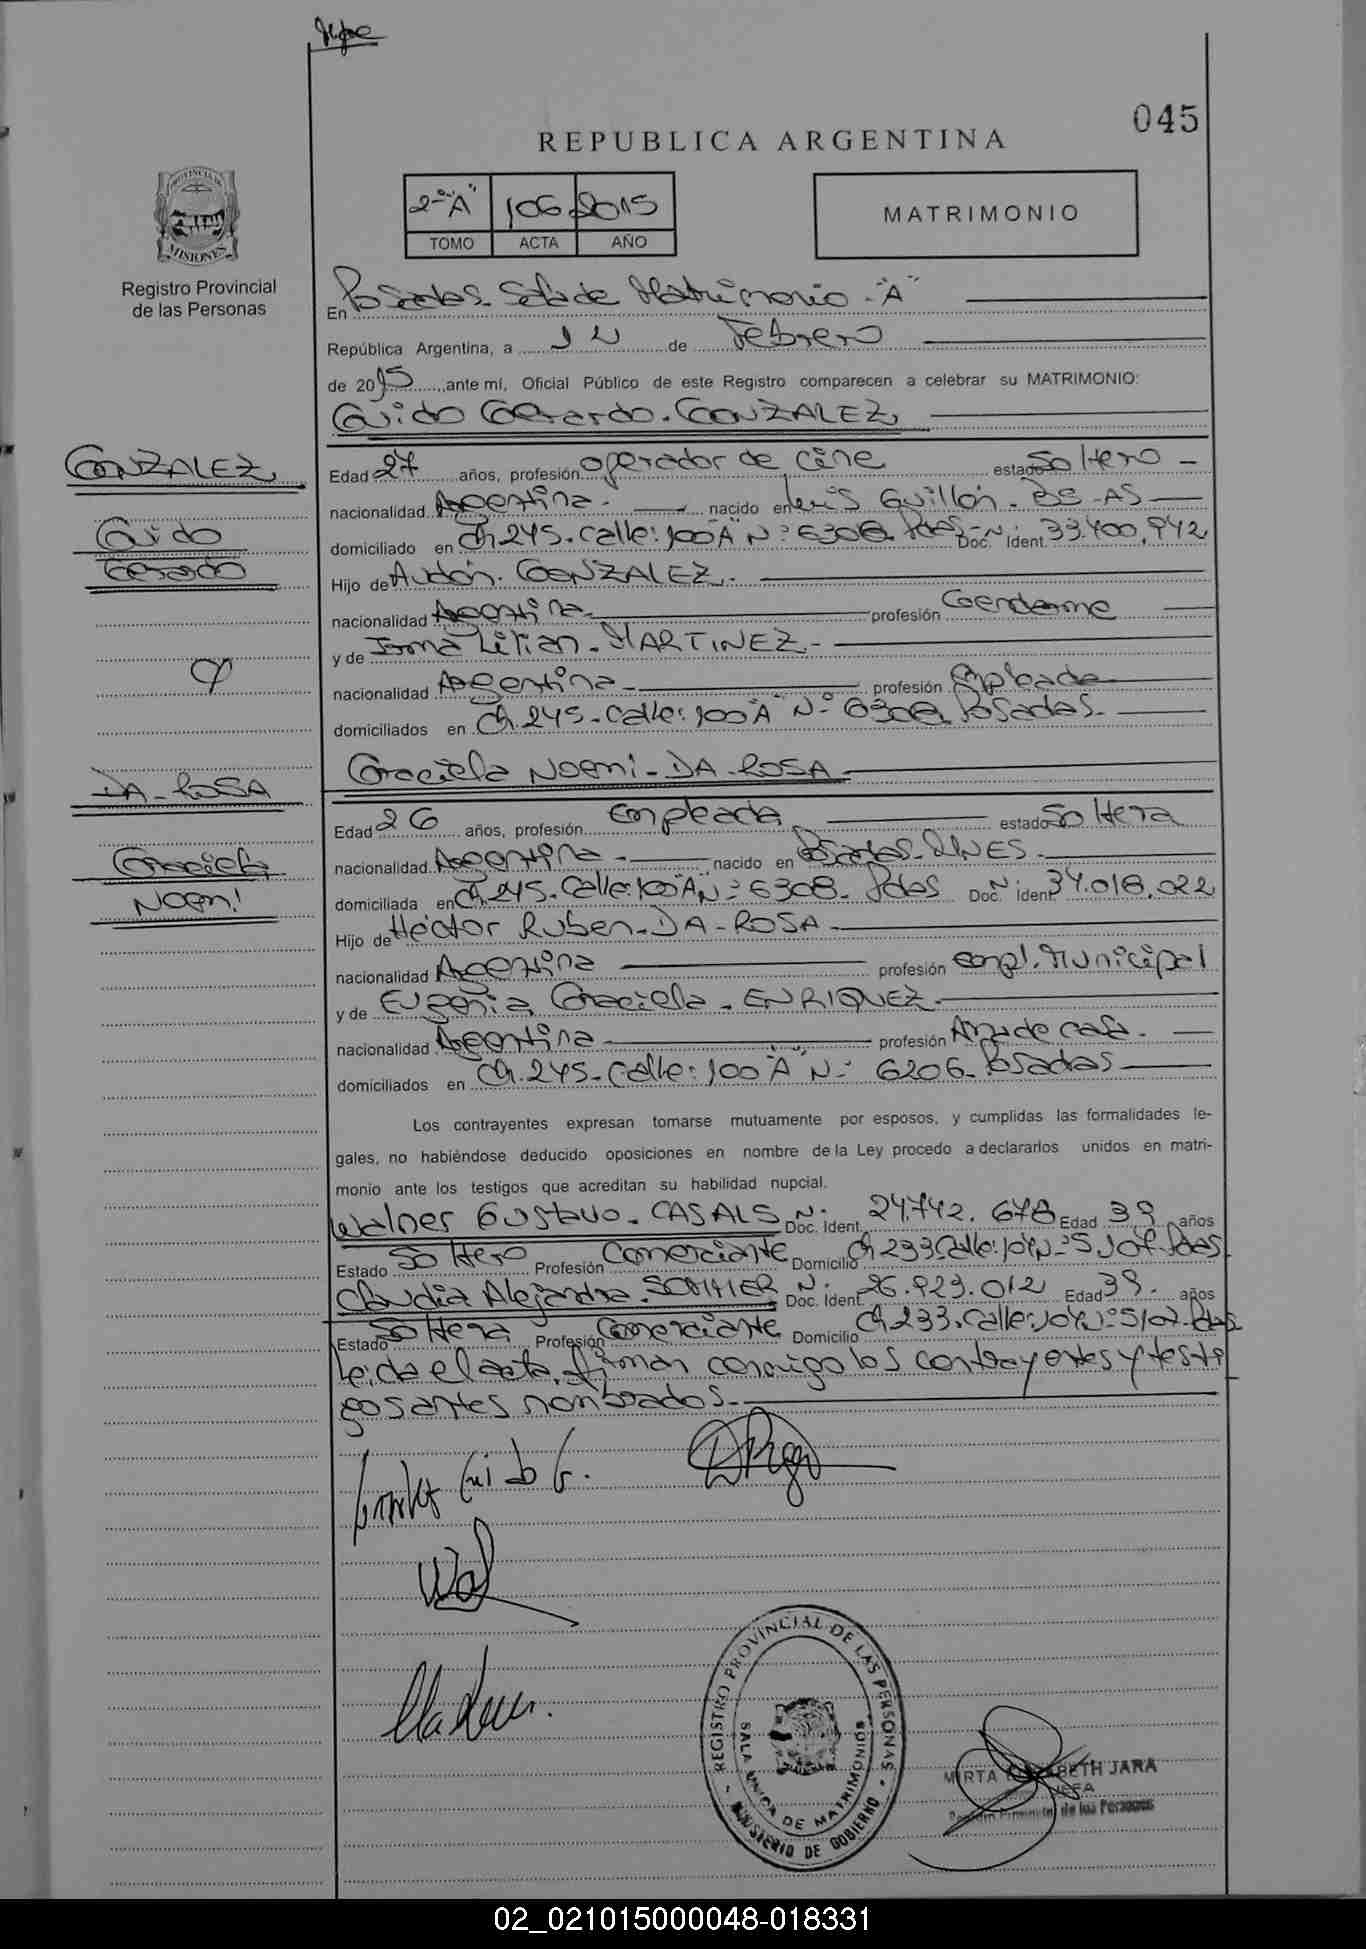 045
REPUBLICA ARGENTINA
2º "A" 106 2015
TOMO ACTA AÑO
MATRIMONIO
PROVINCIA DE MISIONES
Registro Provincial
de las Personas
En Posadas. Sala de Matrimonio. "A"
República Argentina, a 12 de Febrero
de 2015, ante mí, Oficial Público de este Registro comparecen a celebrar su MATRIMONIO:
Guido Gerardo. GONZALEZ
GONZALEZ
Guido
Gerardo
y
DA-ROSA
Graciela
Noemi
Edad 27 años, profesión operador de cine estado Soltero -
nacionalidad Argentina. nacido en Luis Guillón. BS-AS
domiciliado en Ch. 245. Calle: 100"A" Nº: 6308. Pdas- Doc. Nº Ident. 33.400.942
Hijo de Audón. GONZALEZ.
nacionalidad Argentina profesión Gendarme
y de Irma Lilian. MARTINEZ.
nacionalidad Argentina profesión Empleada
domiciliados en Ch. 245. Calle: 100"A" Nº 6308. Posadas.
Graciela Noemi - DA-ROSA
Edad 26 años, profesión Empleada estado Soltera
nacionalidad Argentina nacido en Posadas. MNES.
domiciliada en Ch. 245. Calle: 100"A" Nº: 6308. Pdas Doc. Nº Ident. 34.018.022
Hijo de Héctor Ruben. DA-ROSA
nacionalidad Argentina profesión Empl. Municipal
y de Eugenia Graciela. ENRIQUEZ.
nacionalidad Argentina profesión Ama de casa.
domiciliados en Ch. 245. Calle: 100"A" Nº: 6206. Posadas
Los contrayentes expresan tomarse mutuamente por esposos, y cumplidas las formalidades le-
gales, no habiéndose deducido oposiciones en nombre de la Ley procedo a declararlos unidos en matri-
monio ante los testigos que acreditan su habilidad nupcial.
Walner Gustavo. CASALS Nº Doc. Ident. 24.742.678 Edad 39 años
Estado Soltero Profesión Comerciante Domicilio Ch 233. Calle: 104 Nº 5107. Pdas
Claudia Alejandra. SOMMER Nº Doc. Ident. 26.923.012 Edad 39. años
Estado Soltera Profesión Comerciante Domicilio Ch 233. Calle: 104 Nº: 5107. Pdas
Leida el acta, firman conmigo los contrayentes y testi
gos antes nombrados.
REGISTRO PROVINCIAL DE LAS PERSONAS
SALA UNICA DE MATRIMONIOS
MINISTERIO DE GOBIERNO
MIRTA JARA
JEFA
de las Personas
02_021015000048-018331